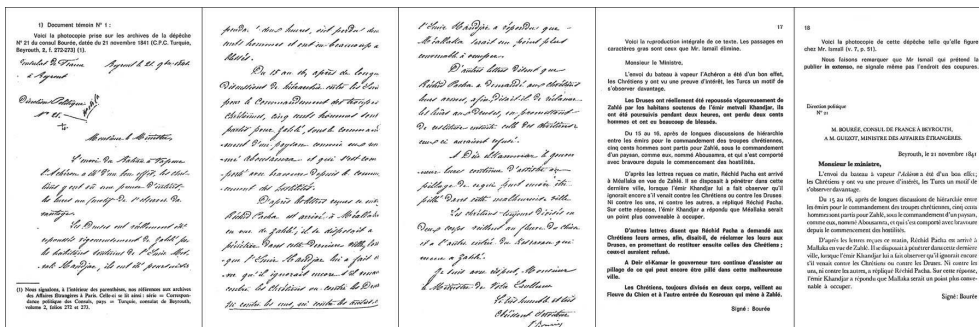 1) Document témoin N° 1 :
Voici la photocopie prise sur les archives de la dépêche
N° 21 du consul Bourée, datée du 21 novembre 1841 (C.P.C. Turquie,
Beyrouth, 2, f. 272-273) (1).
Consulat de France
à Beyrout
Direction Politique
N° 21.
Monsieur le Ministre,
L'envoi du Bateau à Vapeur
l'Achéron a été d'un bon effet, les chré-
tiens y ont vu une preuve d'intérêt,
les Turcs un motif de s'observer da-
vantage.
Les Druses ont réellement été
repoussés vigoureusement de Zahlé par
les habitants soutenus de l'Emir Met-
ils ont été poursuivis
(1) Nous signalons, à l'intérieur des parenthèses, nos références aux archives
des Affaires Etrangères à Paris. Celle-ci se lit ainsi : série = Correspon-
dance politique des Consuls, pays = Turquie, consulat de Beyrouth,
volume 2, folios 272 et 273.
pendant deux heures, ont perdu deux
cents hommes et ont eu beaucoup de
blessés.
Du 15 au 16, après de longues
discussions de hiérarchie entre les Emirs
pour le Commandement des troupes
chrétiennes, cinq cents hommes sont
partis pour Zahlé, sous le comman-
dement d'un paysan comme eux nom-
mé Abousamra et qui s'est com-
porté avec bravoure depuis le commen-
cement des hostilités.
D'après les lettres reçues ce matin,
Réchid Pacha est arrivé à Méallaka
en vue de Zahlé ; il se disposait à
pénétrer dans cette dernière ville, lors-
que l'Emir Handjar lui a fait si-
gn qu'il ignorait encore s'il venait
contre les Chrétiens ou contre les Druses
Ni contre les uns, ni contre les autres,
l'Emir Handjar a répondu que
Méallaka serait un point plus
convenable à occuper.
D'autres lettres disent que
Réchid Pacha a demandé aux chrétiens
leurs armes, afin disait-il, de réclamer
les leurs aux Druses, en promettant
de restituer ensuite celles des chrétiens
ceux-ci auraient refusé.
A Deir el Kammar le gouver-
neur turc continue d'assister au
pillage de ce qui peut encore être
pillé dans cette malheureuse ville.
Les chrétiens toujours divisés en
deux corps veillent au fleuve du Chien
et à l'autre entrée du Kesrouan qui
mène à Zahlé.
Je suis avec respect, Monsieur
le Ministre de Votre Excellence
Le très humble et très
Obéissant Serviteur
Bourée
17
Voici la reproduction intégrale de ce texte. Les passages en
caractères gras sont ceux que Mr. Ismaïl élimine.
Monsieur le Ministre,
L'envoi du bateau à vapeur l'Achéron a été d'un bon effet,
les Chrétiens y ont vu une preuve d'intérêt, les Turcs un motif de
s'observer davantage.
Les Druses ont réellement été repoussés vigoureusement de
Zahlé par les habitants soutenus de l'émir métvali Khandjar, ils
ont été poursuivis pendant deux heures, ont perdu deux cents
hommes et ont eu beaucoup de blessés.
Du 15 au 16, après de longues discussions de hiérarchie
entre les émirs pour le commandement des troupes chrétiennes,
cinq cents hommes sont partis pour Zahlé, sous le commandement
d'un paysan, comme eux, nommé Abousamra, et qui s'est comporté
avec bravoure depuis le commencement des hostilités.
D'après les lettres reçues ce matin, Réchid Pacha est arrivé
à Méallaka en vue de Zahlé. Il se disposait à pénétrer dans cette
dernière ville, lorsque l'Emir Khandjar lui a fait observer qu'il
ignorait encore s'il venait contre les Chrétiens ou contre les Druses.
Ni contre les uns, ni contre les autres, a répliqué Réchid Pacha.
Sur cette réponse, l'émir Khandjar a répondu que Méallaka serait
un point plus convenable à occuper.
D'autres lettres disent que Réchid Pacha a demandé aux
Chrétiens leurs armes, afin, disait-il, de réclamer les leurs aux
Druses, en promettant de restituer ensuite celles des Chrétiens :
ceux-ci auraient refusé.
A Deir el-Kamar le gouverneur turc continue d'assister au
pillage de ce qui peut encore être pillé dans cette malheureuse
ville.
Les Chrétiens, toujours divisés en deux corps, veillent au
Fleuve du Chien et à l'autre entrée du Kesrouan qui mène à Zahlé.
Signé : Bourée
18
Voici la photocopie de cette dépêche telle qu'elle figure
chez Mr. Ismaïl (v. 7, p. 51).
Nous faisons remarquer que Mr Ismaïl qui prétend la
publier in extenso, ne signale même pas l'endroit des coupures.
Direction politique
N° 21
M. BOURÉE, CONSUL DE FRANCE À BEYROUTH,
A M. GUIZOT, MINISTRE DES AFFAIRES ÉTRANGÈRES.
Beyrouth, le 21 novembre 1841
Monsieur le ministre,
L'envoi du bateau à vapeur l'Achéron a été d'un bon effet ;
les Chrétiens y ont vu une preuve d'intérêt, les Turcs un motif de
s'observer davantage.
Du 15 au 16, après de longues discussions de hiérarchie entre
les émirs pour le commandement des troupes chrétiennes, cinq cents
hommes sont partis pour Zahlé, sous le commandement d'un paysan,
comme eux, nommé Abousamra, et qui s'est comporté avec bravoure
depuis le commencement des hostilités.
D'après les lettres reçues ce matin, Réchid Pacha est arrivé à
Mallaka en vue de Zahlé. Il se disposait à pénétrer dans cette dernière
ville, lorsque l'émir Khandjar lui a fait observer qu'il ignorait encore
s'il venait contre les Chrétiens ou contre les Druses. Ni contre les
uns, ni contre les autres, a répliqué Réchid Pacha. Sur cette réponse,
l'émir Khandjar a répondu que Méallaka serait un point plus conve-
nable à occuper.
Signé : Bourée